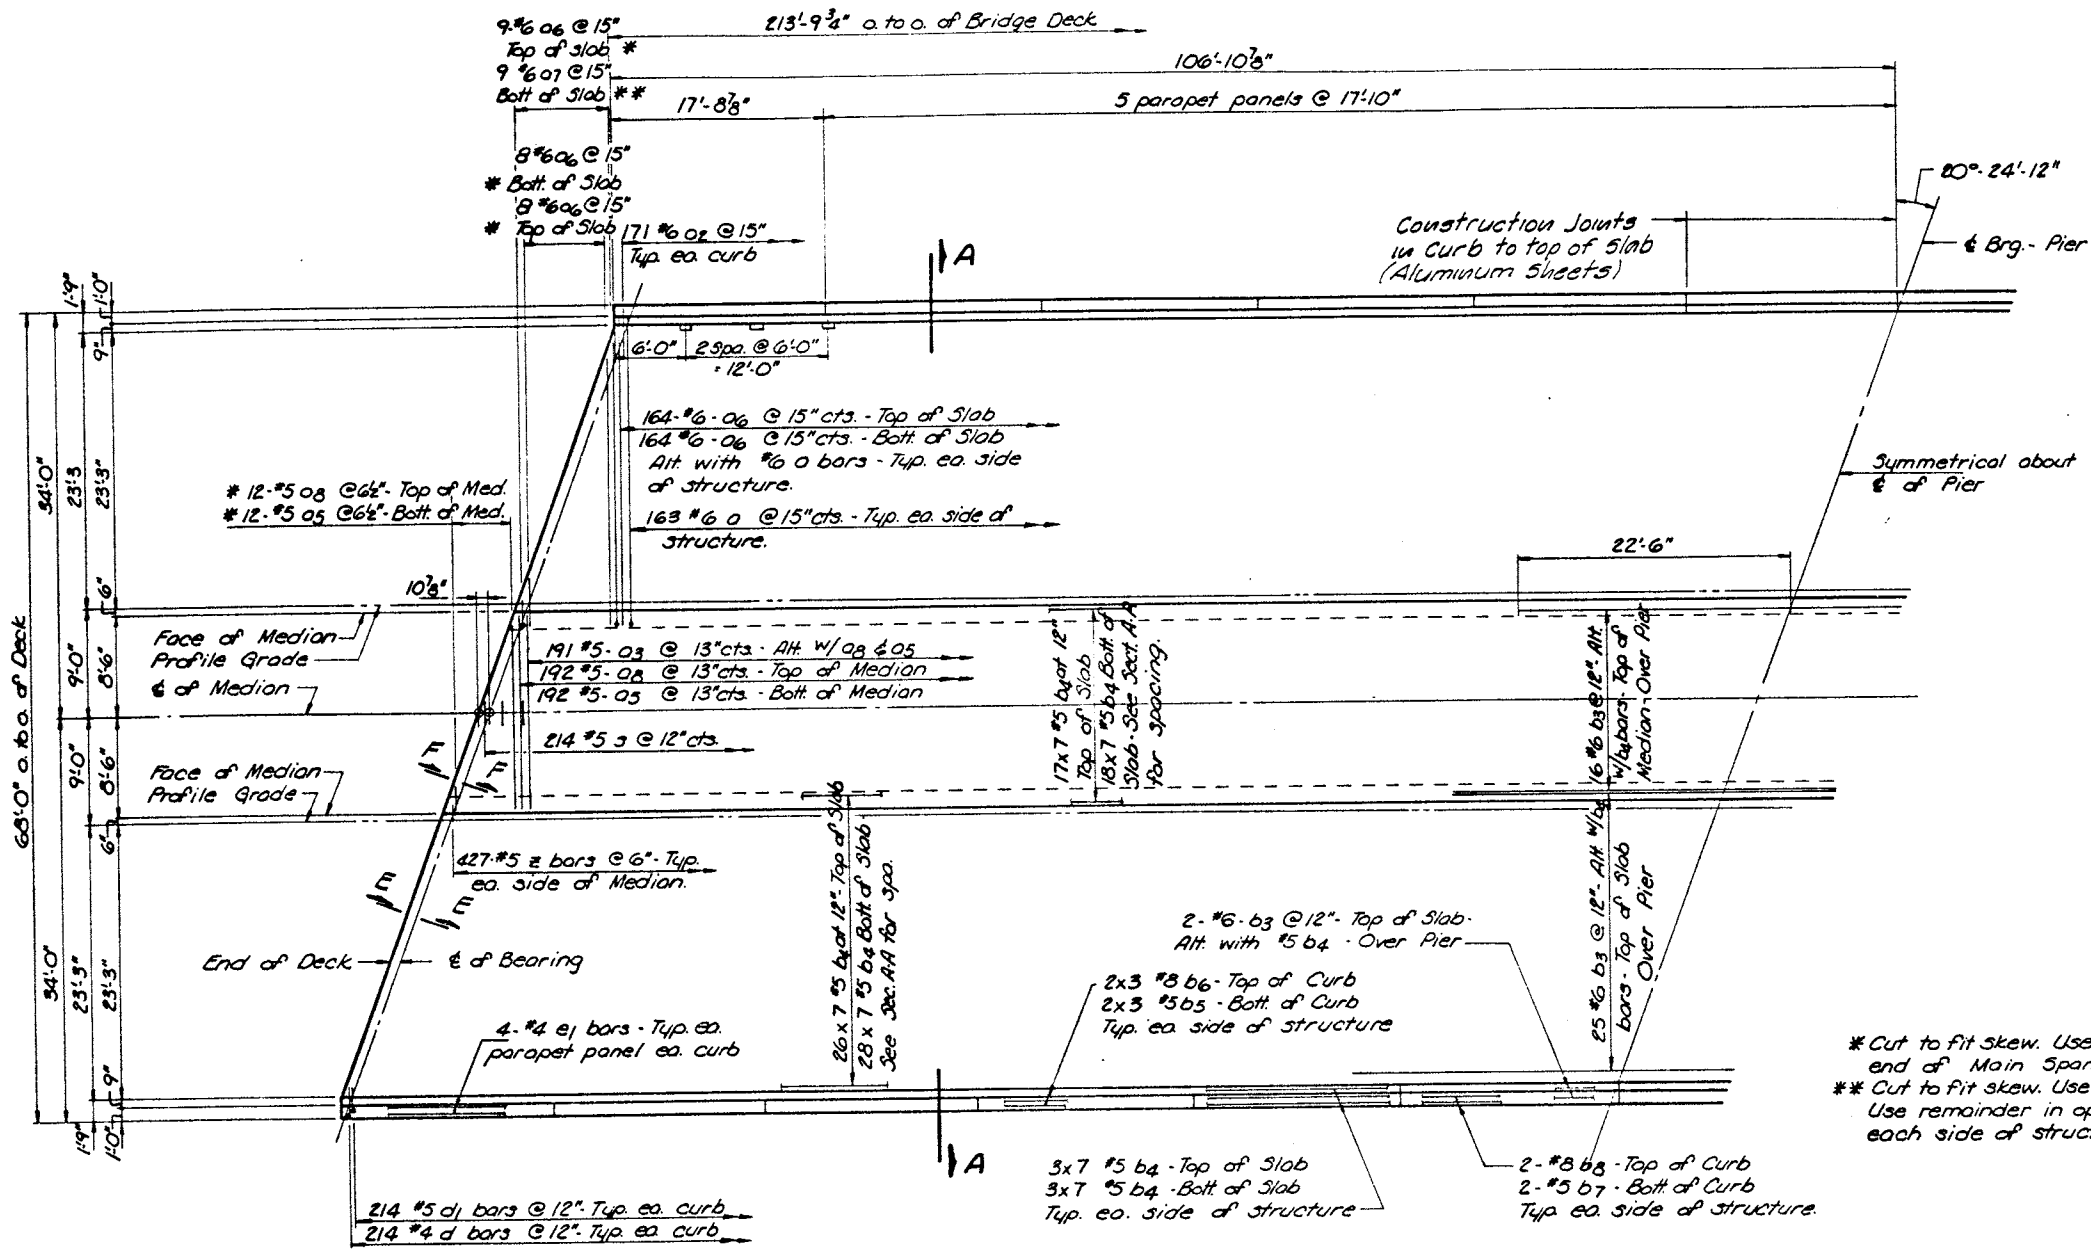 9-#6 a6 @ 15"
Top of slab *
9 #6 a7 @ 15"
Bott of Slab **
213'-9¾" o. to o. of Bridge Deck
106'-10⅞"
17'-8⅞"
5 parapet panels @ 17'-10"
8 #6 a6 @ 15"
* Bott. of Slab
8 #6 a6 @ 15"
* Top of Slab
171 #6 a2 @ 15"
Typ. ea. curb
A
Construction Joints
in Curb to top of Slab
(Aluminum Sheets)
20°-24'-12"
℄ Brg. - Pier
1'-9"
1'-0"
9"
6'-0"
2 spa. @ 6'-0"
= 12'-0"
164-#6-a6 @ 15" cts. - Top of Slab
164 #6-a6 @ 15" cts. - Bott. of Slab
Alt. with #6 a bars - Typ. ea. side
of structure.
163 #6 a @ 15" cts. - Typ. ea. side of
structure.
* 12-#5 a8 @ 6½" - Top of Med.
* 12-#5 a5 @ 6½" - Bott. of Med.
Symmetrical about
℄ of Pier
22'-6"
10⅞"
68'-0" o. to o. of Deck
34'-0"
23'-3
23'-3"
6"
9'-0"
8'-6"
Face of Median
Profile Grade
℄ of Median
191 #5-a3 @ 13" cts. - Alt. w/ a8 & a5
192 #5-a8 @ 13" cts. - Top of Median
192 #5-a5 @ 13" cts. - Bott. of Median
214 #5 s @ 12" cts.
17x7 #5 b4 at 12"
Top of Slab
18x7 #5 b4 Bott. of
Slab - See Sect. A-A
for spacing.
16 #6 b3 @ 12" - Alt.
w/b4 bars - Top of
Median - Over Pier
9'-0"
8'-6"
6"
Face of Median
Profile Grade
F
F
427-#5 z bars @ 6" - Typ.
ea. side of Median.
E
E
26x7 #5 b4 at 12" - Top of Slab
28x7 #5 b4 Bott. of Slab
See Sec. A-A for spa.
25 #6 b3 @ 12" - Alt. w/b4
bars - Top of Slab
Over Pier
34'-0"
23'-3"
23'-3"
End of Deck
℄ of Bearing
2-#6-b3 @ 12" - Top of Slab -
Alt. with #5 b4 - Over Pier
2x3 #8 b6 - Top of Curb
2x3 #5 b5 - Bott. of Curb
Typ. ea. side of structure
4-#4 e1 bars - Typ. ea.
parapet panel ea. curb
9"
1'-9"
1'-0"
* Cut to fit skew. Use
end of Main Spar
** Cut to fit skew. Use
Use remainder in op
each side of struct
A
3x7 #5 b4 - Top of Slab
3x7 #5 b4 - Bott. of Slab
Typ. ea. side of structure
2-#8 b8 - Top of Curb
2-#5 b7 - Bott. of Curb
Typ. ea. side of structure.
214 #5 d1 bars @ 12" - Typ. ea. curb
214 #4 d bars @ 12" - Typ. ea. curb